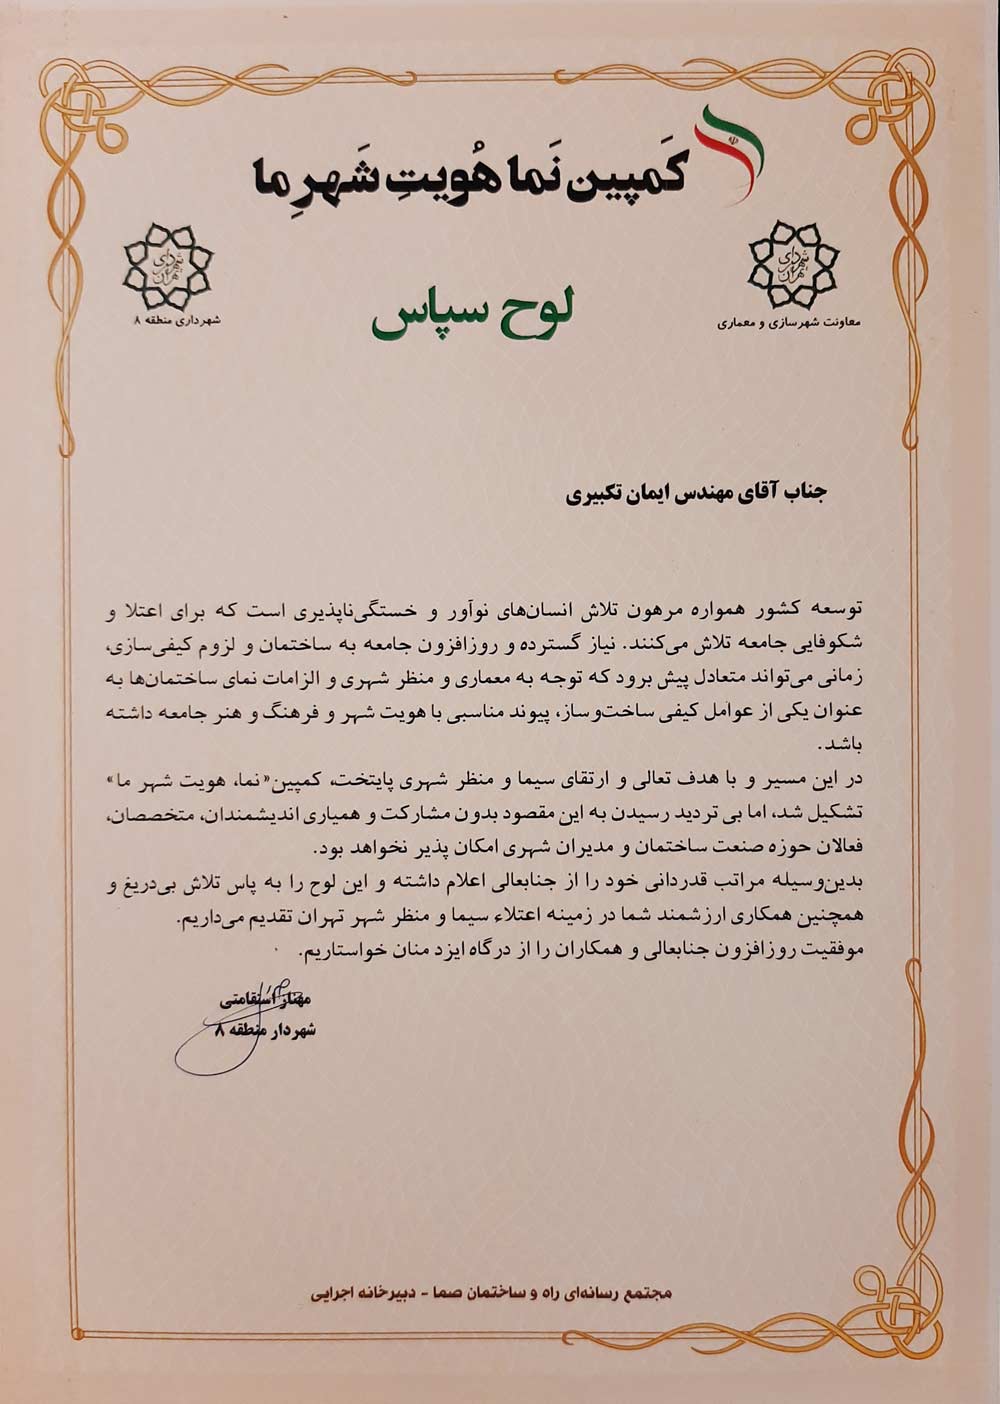 کَمپین نَما هُویتِ شَهرِ ما
شهرداری تهران
معاونت شهرسازی و معماری
شهرداری تهران
شهرداری منطقه ۸
لوح سپاس
جناب آقای مهندس ایمان تکبیری
توسعه کشور همواره مرهون تلاش انسان‌های نوآور و خستگی‌ناپذیری است که برای اعتلا و
شکوفایی جامعه تلاش می‌کنند. نیاز گسترده و روزافزون جامعه به ساختمان و لزوم کیفی‌سازی،
زمانی می‌تواند متعادل پیش برود که توجه به معماری و منظر شهری و الزامات نمای ساختمان‌ها به
عنوان یکی از عوامل کیفی ساخت‌وساز، پیوند مناسبی با هویت شهر و فرهنگ و هنر جامعه داشته
باشد.
در این مسیر و با هدف تعالی و ارتقای سیما و منظر شهری پایتخت، کمپین«نما، هویت شهر ما»
تشکیل شد، اما بی تردید رسیدن به این مقصود بدون مشارکت و همیاری اندیشمندان، متخصصان،
فعالان حوزه صنعت ساختمان و مدیران شهری امکان پذیر نخواهد بود.
بدین‌وسیله مراتب قدردانی خود را از جنابعالی اعلام داشته و این لوح را به پاس تلاش بی‌دریغ و
همچنین همکاری ارزشمند شما در زمینه اعتلاء سیما و منظر شهر تهران تقدیم می‌داریم.
موفقیت روزافزون جنابعالی و همکاران را از درگاه ایزد منان خواستاریم.
مهناز استقامتی
شهردار منطقه ۸
مجتمع رسانه‌ای راه و ساختمان صما - دبیرخانه اجرایی